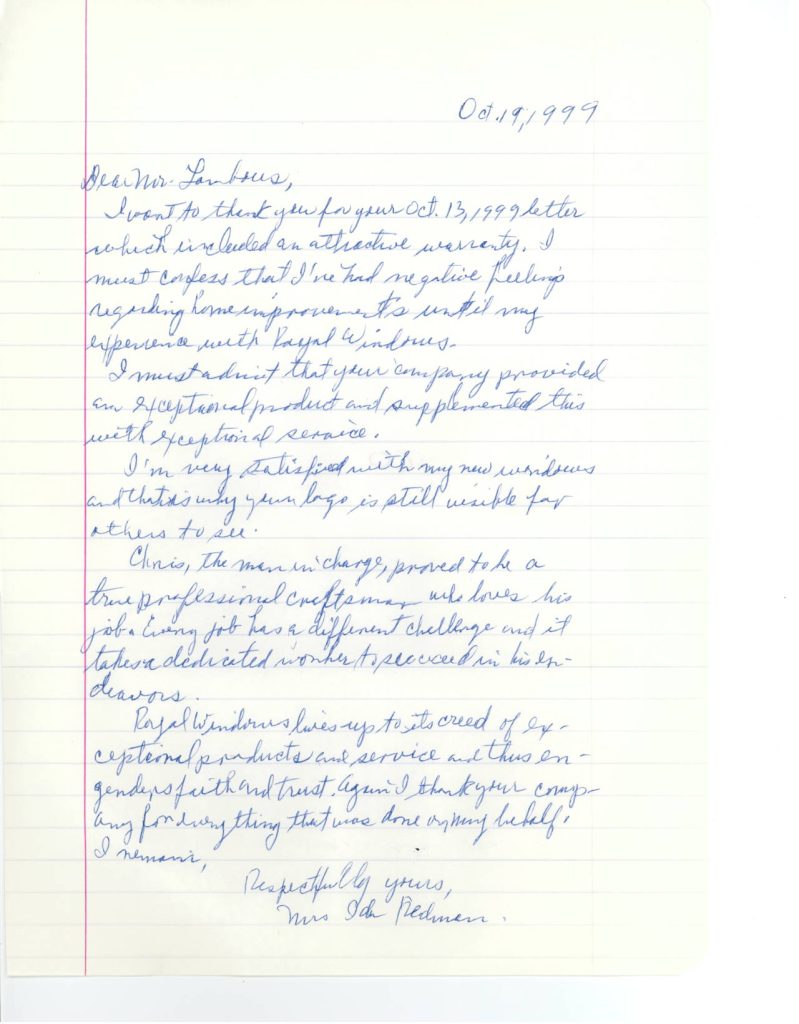 Oct. 19, 1999
Dear Mr. Lambous,
I want to thank you for your Oct. 13, 1999 letter
which included an attractive warranty. I
must confess that I've had negative feelings
regarding home improvements until my
experience with Royal Windows.
I must admit that your company provided
an exceptional product and supplemented this
with exceptional service.
I'm very satisfied with my new windows
and that is why your logo is still visible for
others to see.
Chris, the man in charge, proved to be a
true professional craftsman who loves his
job. Every job has a different challenge and it
takes a dedicated worker to succeed in his en-
deavors.
Royal Windows lives up to its creed of ex-
ceptional products and service and thus en-
genders faith and trust. Again I thank your comp-
any for everything that was done on my behalf.
I remain,
Respectfully yours,
Mrs Ida Redman.